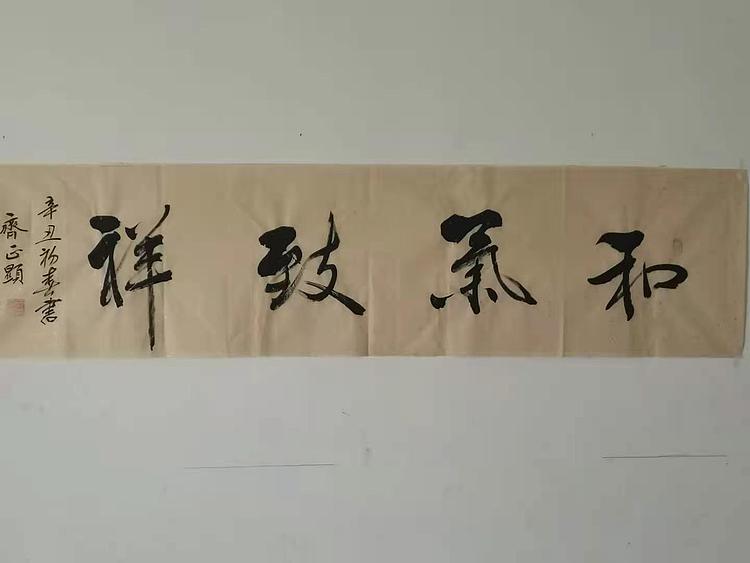 和氣致祥
辛丑初春書
齊正顯